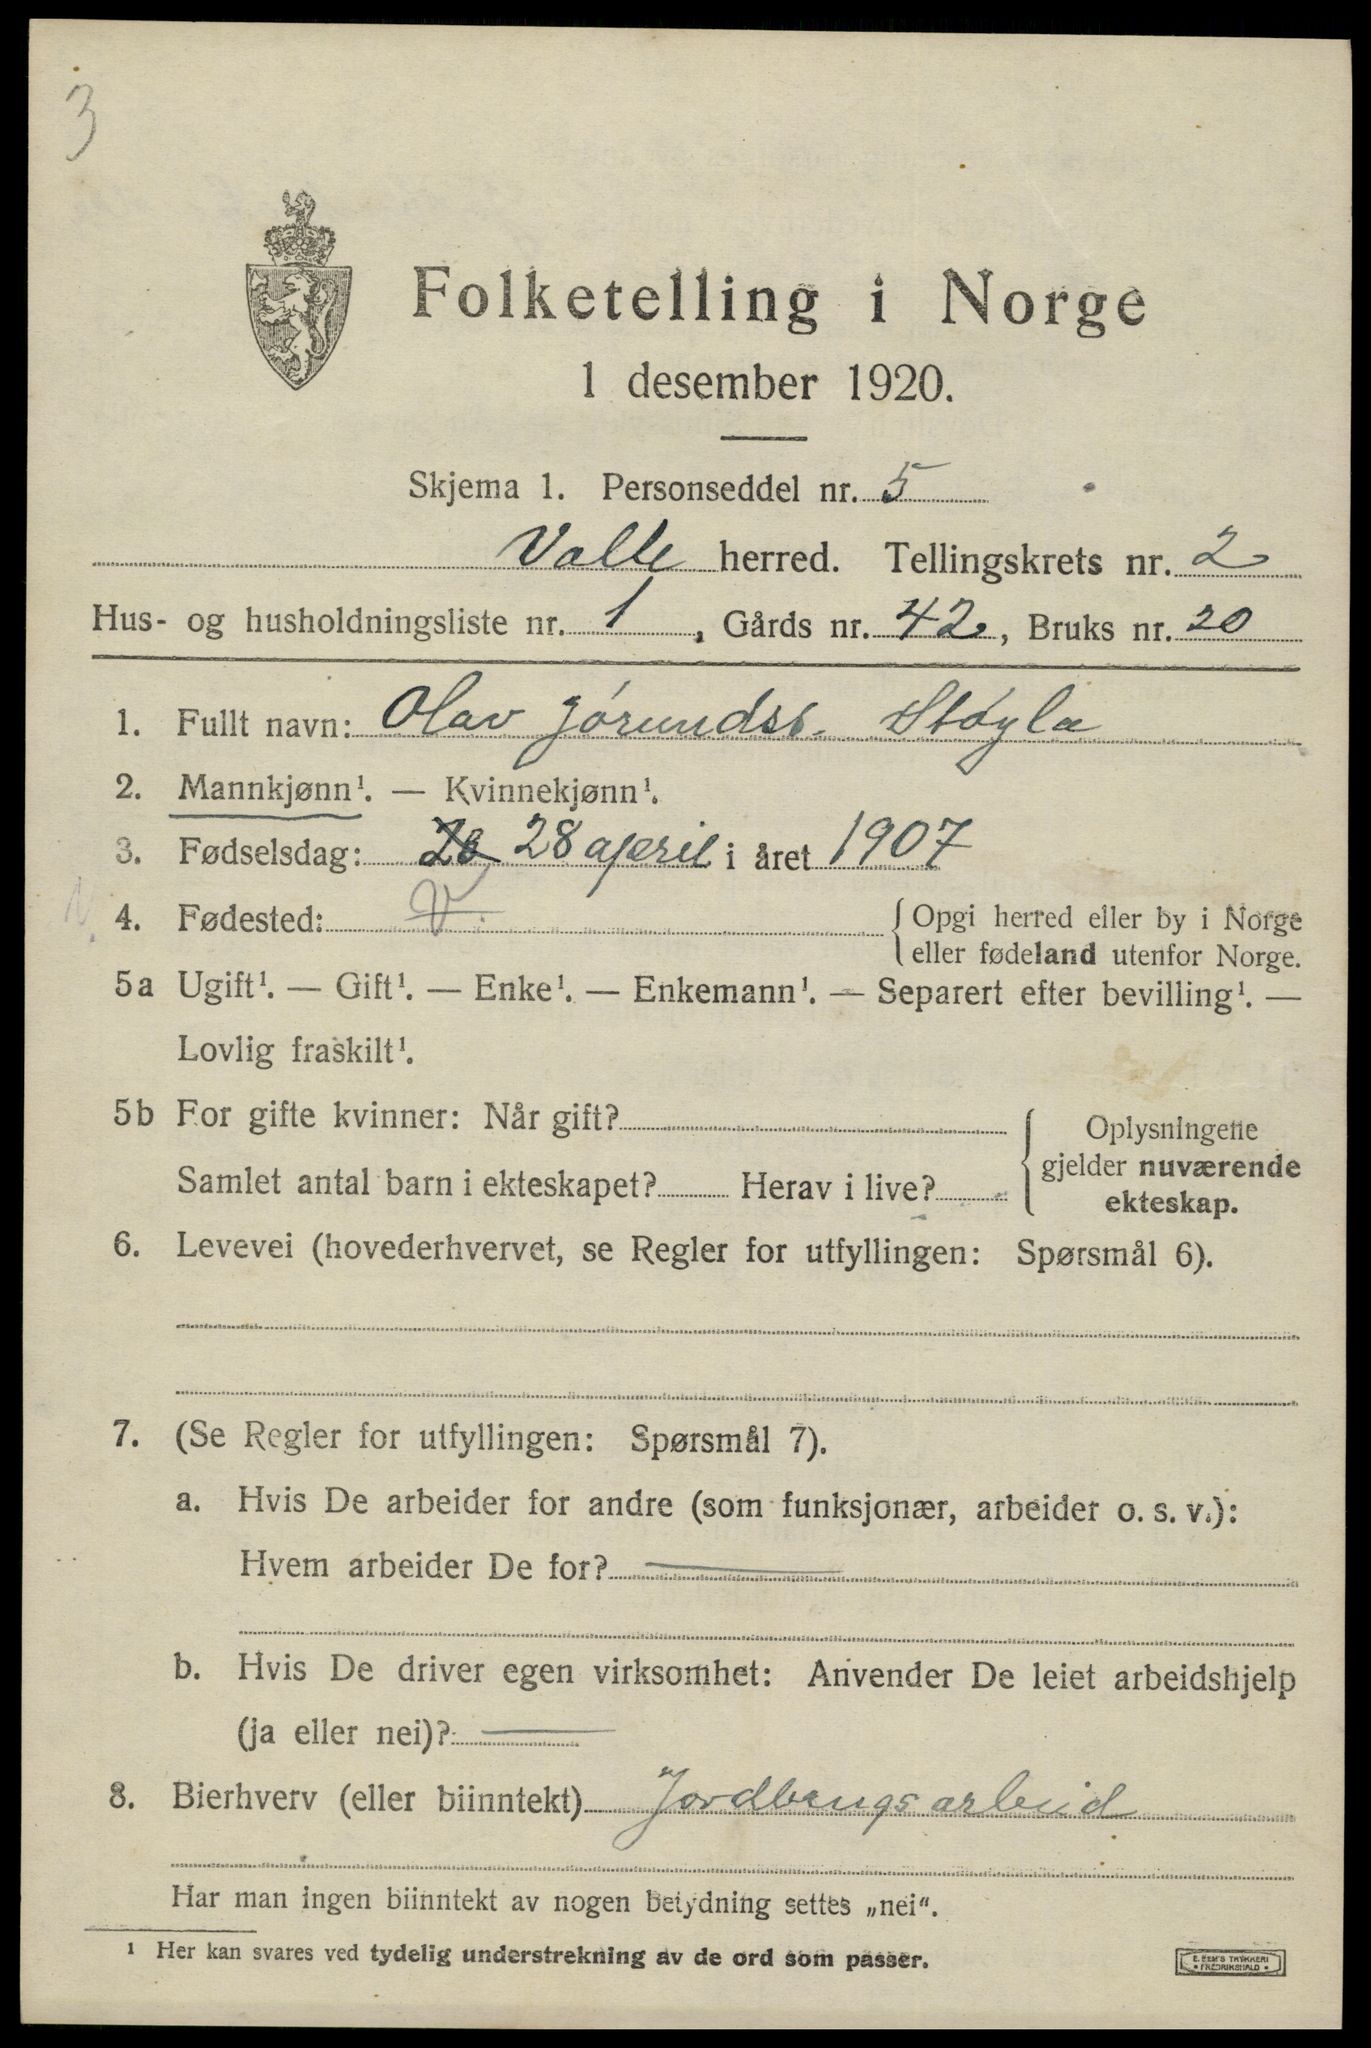 3
Folketelling i Norge
1 desember 1920.
Skjema 1. Personseddel nr. 5
Valle herred. Tellingskrets nr. 2
Hus- og husholdningsliste nr. 1, Gårds nr. 42, Bruks nr. 20
1. Fullt navn: Olav Jórundss. Støyla
2. Mannkjønn¹. — Kvinnekjønn¹.
3. Fødselsdag: 28 april i året 1907
4. Fødested: V. { Opgi herred eller by i Norge
eller fødeland utenfor Norge.
5a Ugift¹. — Gift¹. — Enke¹. — Enkemann¹. — Separert efter bevilling¹. —
Lovlig fraskilt¹.
5b For gifte kvinner: Når gift? { Oplysningene
gjelder nuværende
Samlet antal barn i ekteskapet? Herav i live? ekteskap.
6. Levevei (hovederhvervet, se Regler for utfyllingen: Spørsmål 6).
7. (Se Regler for utfyllingen: Spørsmål 7).
a. Hvis De arbeider for andre (som funksjonær, arbeider o. s. v.):
Hvem arbeider De for? —
b. Hvis De driver egen virksomhet: Anvender De leiet arbeidshjelp
(ja eller nei)? —
8. Bierhverv (eller biinntekt) Jordbrugsarbeid
Har man ingen biinntekt av nogen betydning settes „nei“.
¹ Her kan svares ved tydelig understrekning av de ord som passer.
E. SEM'S TRYKKERI
• FREDRIKSHALD •